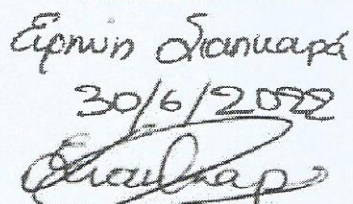 Ειρήνη Διαπκαρά
30/6/2022